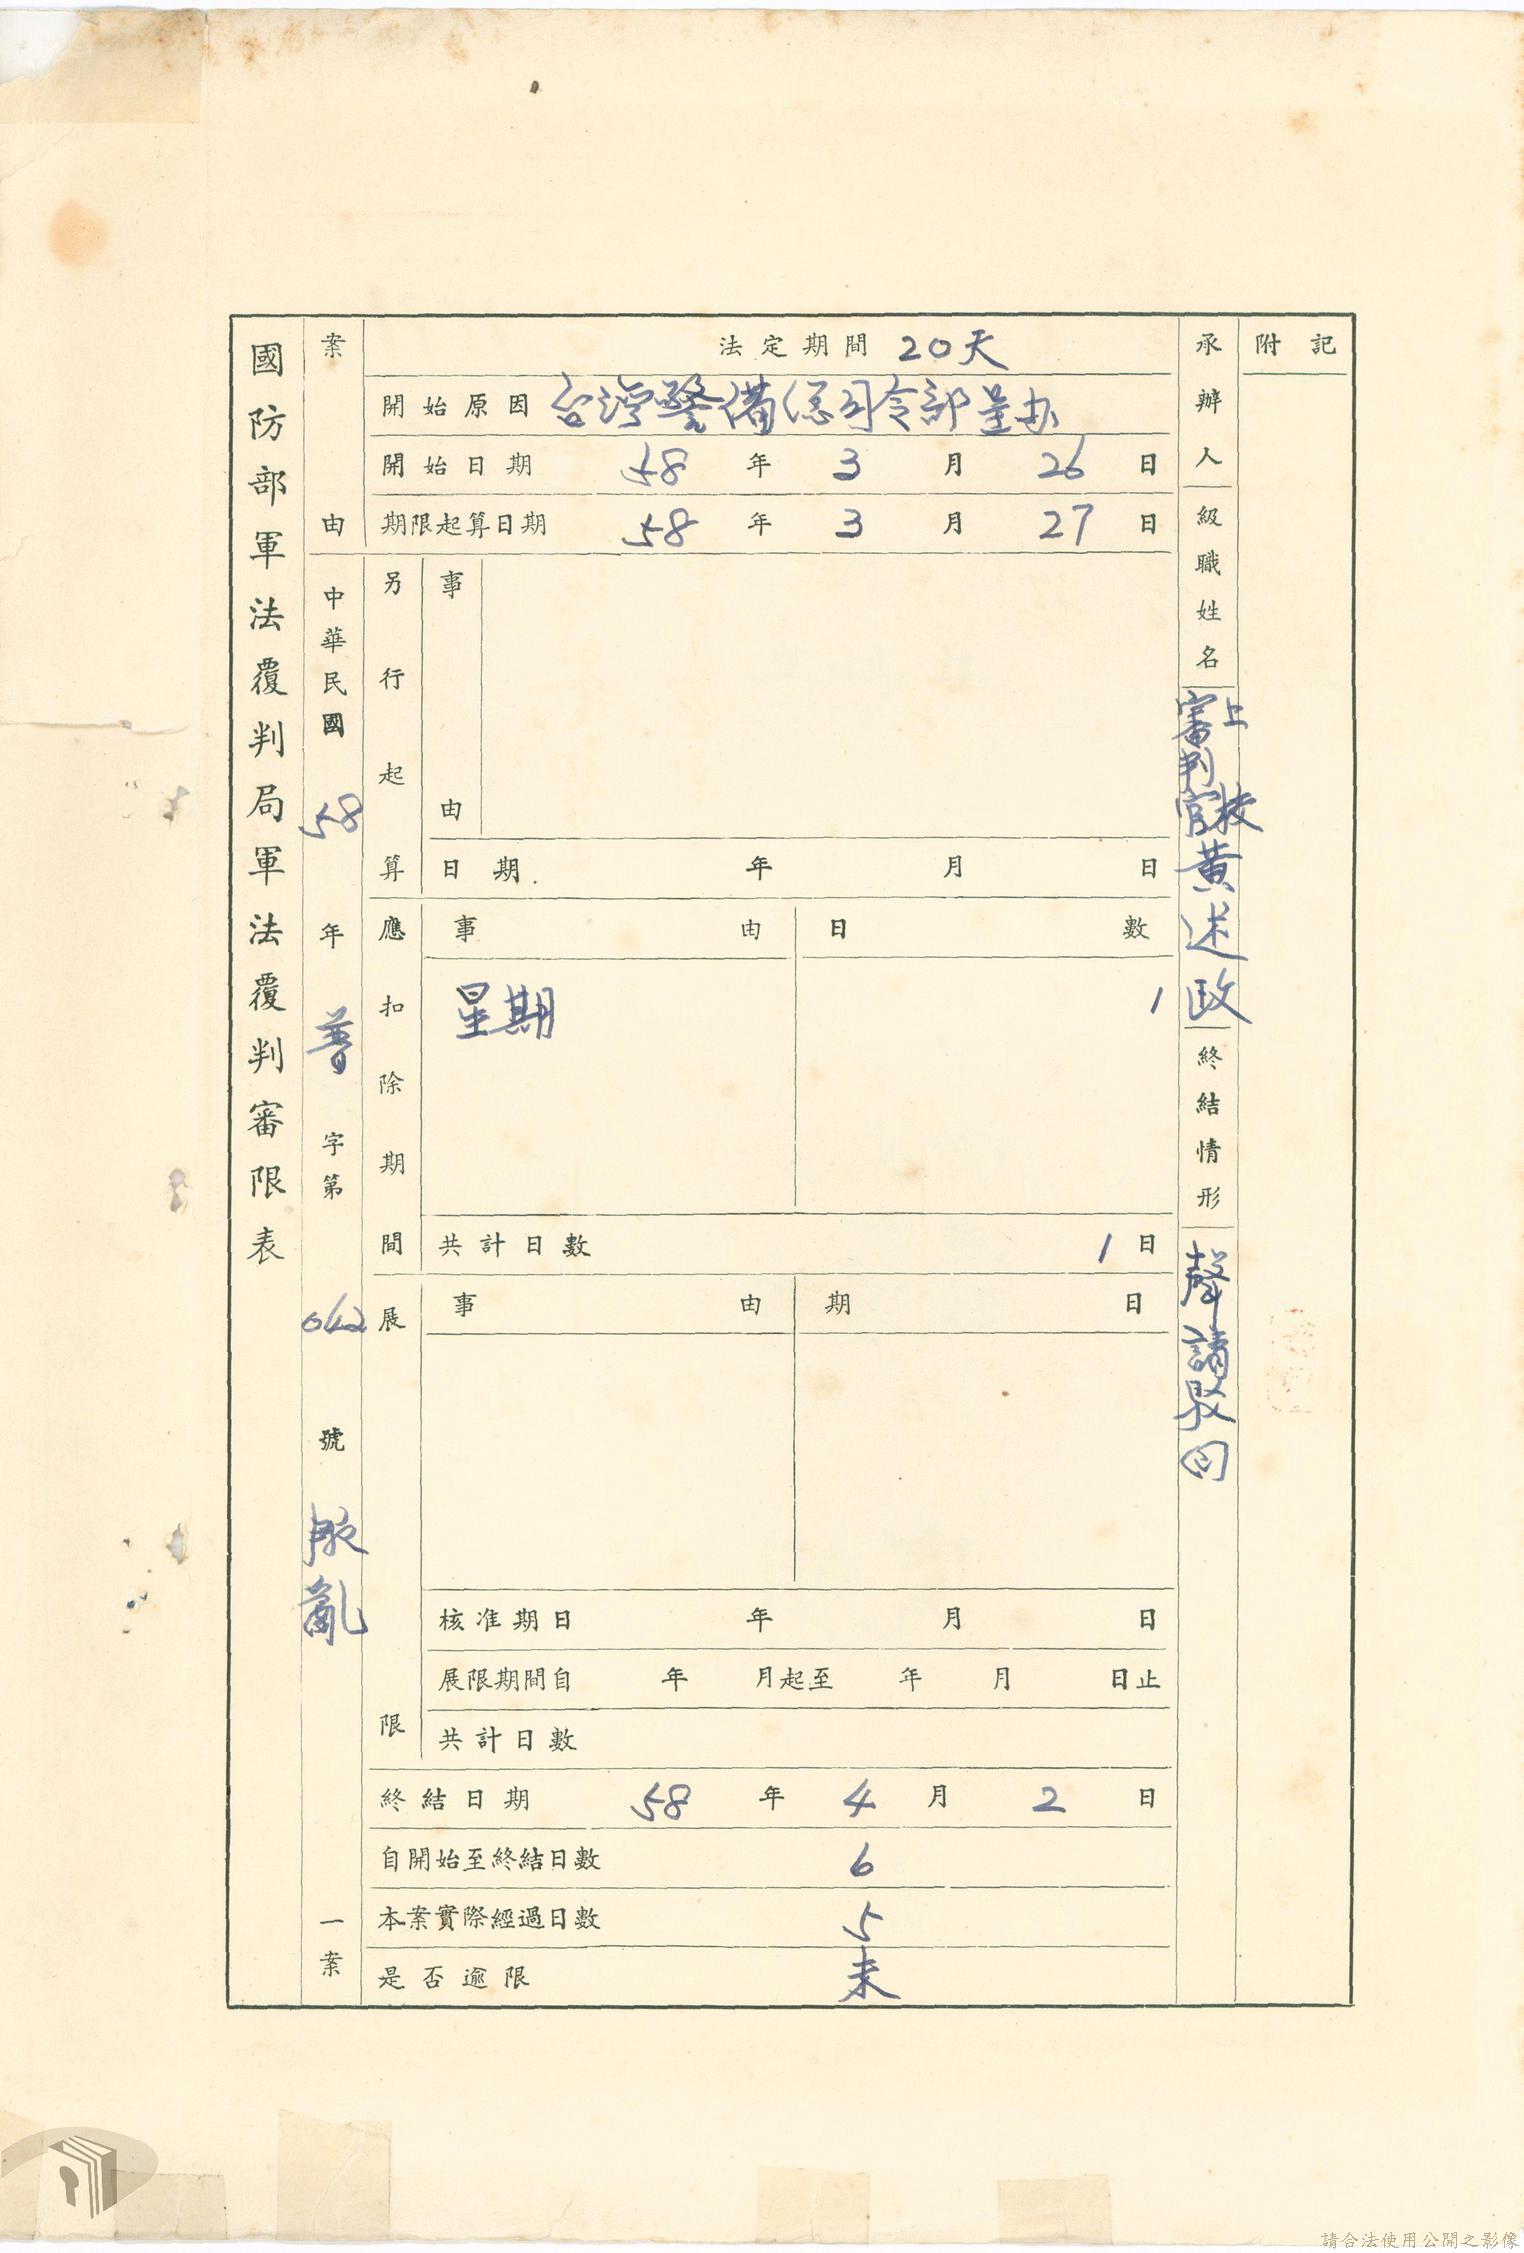 國防部軍法覆判局軍法覆判審限表
案由
中華民國58年普字第042號叛亂一案
法定期間 20天
開始原因 台灣警備總司令部呈办
開始日期 58年3月26日
期限起算日期 58年3月27日
另行起算
事由
日期 年 月 日
應扣除期間
事由 日數
星期 1
共計日數 1日
展限
事由 期日
核准期日 年 月 日
展限期間自 年 月起至 年 月 日止
共計日數
終結日期 58年4月2日
自開始至終結日數 6
本案實際經過日數 5
是否逾限 未
承辦人
級職姓名
上校
審判官
黃述政
終結情形
聲請駁回
附記
請合法使用公開之影像